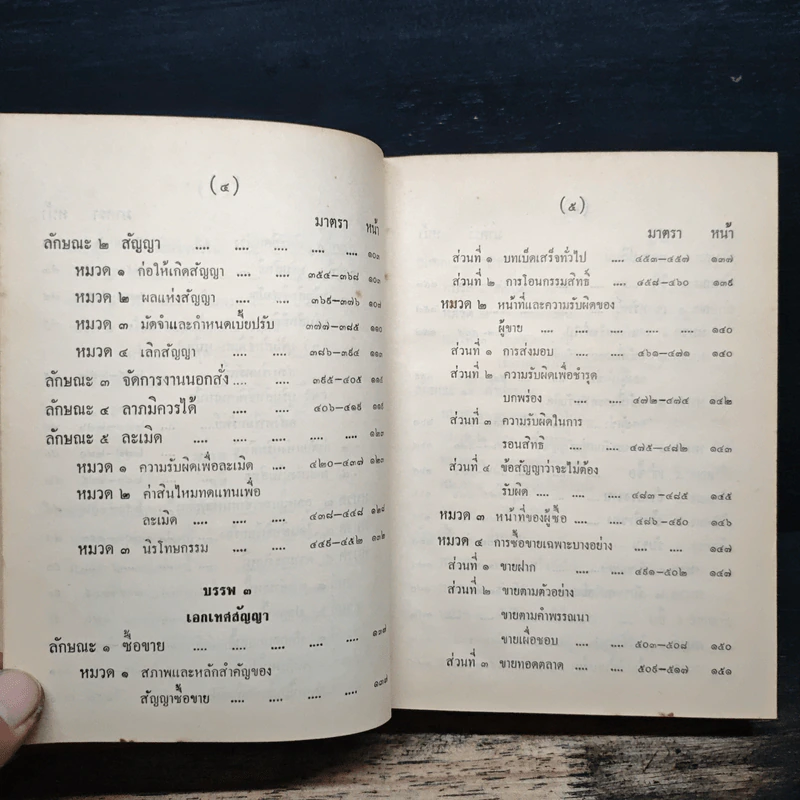 (๔)
มาตรา หน้า
ลักษณะ ๒ สัญญา .... .... .... .... .... ๑๐๓
หมวด ๑ ก่อให้เกิดสัญญา .... ๓๕๔—๓๖๘ ๑๐๓
หมวด ๒ ผลแห่งสัญญา .... ๓๖๙—๓๗๖ ๑๐๗
หมวด ๓ มัดจำและกำหนดเบี้ยปรับ ๓๗๗—๓๘๕ ๑๑๐
หมวด ๔ เลิกสัญญา .... ๓๘๖—๓๙๔ ๑๑๓
ลักษณะ ๓ จัดการงานนอกสั่ง .... .... ๓๙๕—๔๐๕ ๑๑๖
ลักษณะ ๔ ลาภมิควรได้ .... ๔๐๖—๔๑๙ ๑๑๙
ลักษณะ ๕ ละเมิด .... .... .... .... .... ๑๒๓
หมวด ๑ ความรับผิดเพื่อละเมิด .... ๔๒๐—๔๓๗ ๑๒๓
หมวด ๒ ค่าสินไหมทดแทนเพื่อ
ละเมิด .... .... .... ๔๓๘—๔๔๘ ๑๒๘
หมวด ๓ นิรโทษกรรม .... .... ๔๔๙—๔๕๒ ๑๓๒
บรรพ ๓
เอกเทศสัญญา
ลักษณะ ๑ ซื้อขาย .... .... .... .... ๑๓๗
หมวด ๑ สภาพและหลักสำคัญของ
สัญญาซื้อขาย .... .... .... .... ๑๓๗
(๕)
มาตรา หน้า
ส่วนที่ ๑ บทเบ็ดเสร็จทั่วไป .... ๔๕๓—๔๕๗ ๑๓๗
ส่วนที่ ๒ การโอนกรรมสิทธิ์ .... ๔๕๘—๔๖๐ ๑๓๙
หมวด ๒ หน้าที่และความรับผิดของ
ผู้ขาย .... .... .... .... .... ๑๔๐
ส่วนที่ ๑ การส่งมอบ .... .... ๔๖๑—๔๗๑ ๑๔๐
ส่วนที่ ๒ ความรับผิดเพื่อชำรุด
บกพร่อง .... .... ๔๗๒—๔๗๔ ๑๔๒
ส่วนที่ ๓ ความรับผิดในการ
รอนสิทธิ .... .... ๔๗๕—๔๘๒ ๑๔๓
ส่วนที่ ๔ ข้อสัญญาว่าจะไม่ต้อง
รับผิด .... .... .... ๔๘๓—๔๘๕ ๑๔๕
หมวด ๓ หน้าที่ของผู้ซื้อ .... .... ๔๘๖—๔๙๐ ๑๔๖
หมวด ๔ การซื้อขายเฉพาะบางอย่าง .... .... ๑๔๗
ส่วนที่ ๑ ขายฝาก .... .... ๔๙๑—๕๐๒ ๑๔๗
ส่วนที่ ๒ ขายตามตัวอย่าง
ขายตามคำพรรณนา
ขายเผื่อชอบ .... .... ๕๐๓—๕๐๘ ๑๕๐
ส่วนที่ ๓ ขายทอดตลาด .... .... ๕๐๙—๕๑๗ ๑๕๑